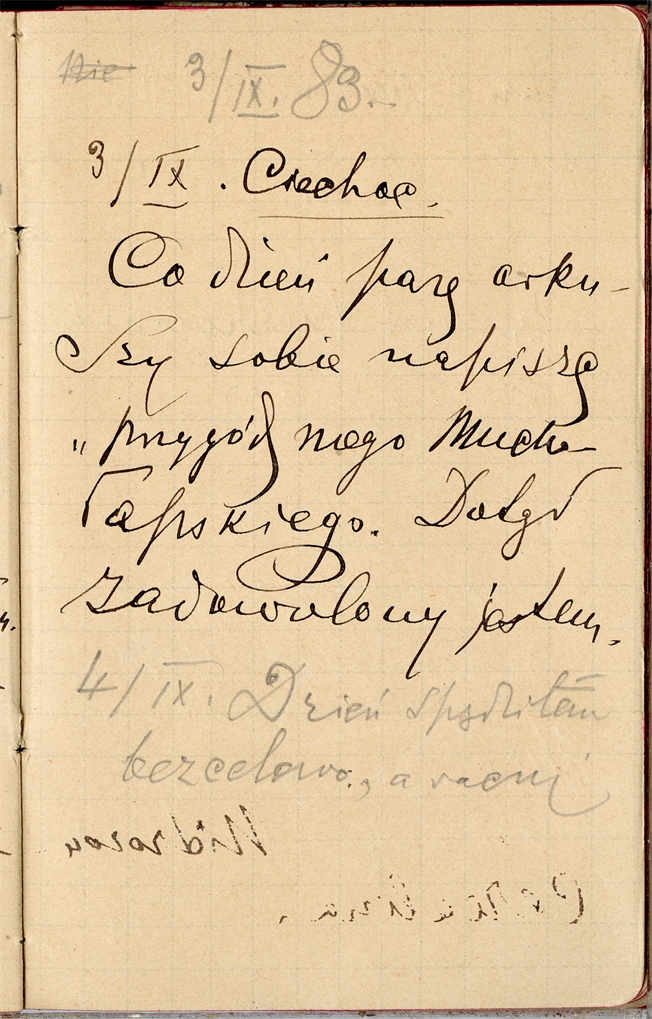 ~~Nie~~ 3/IX. 83.
3/IX. Czechae.
Co dzień parę arku-
szy sobie napiszę
„przygód mego Mucho-
łapskiego. Dotąd
zadowolony jestem.
4/IX. Dzień spędziłem
bezcelowo, a raczej